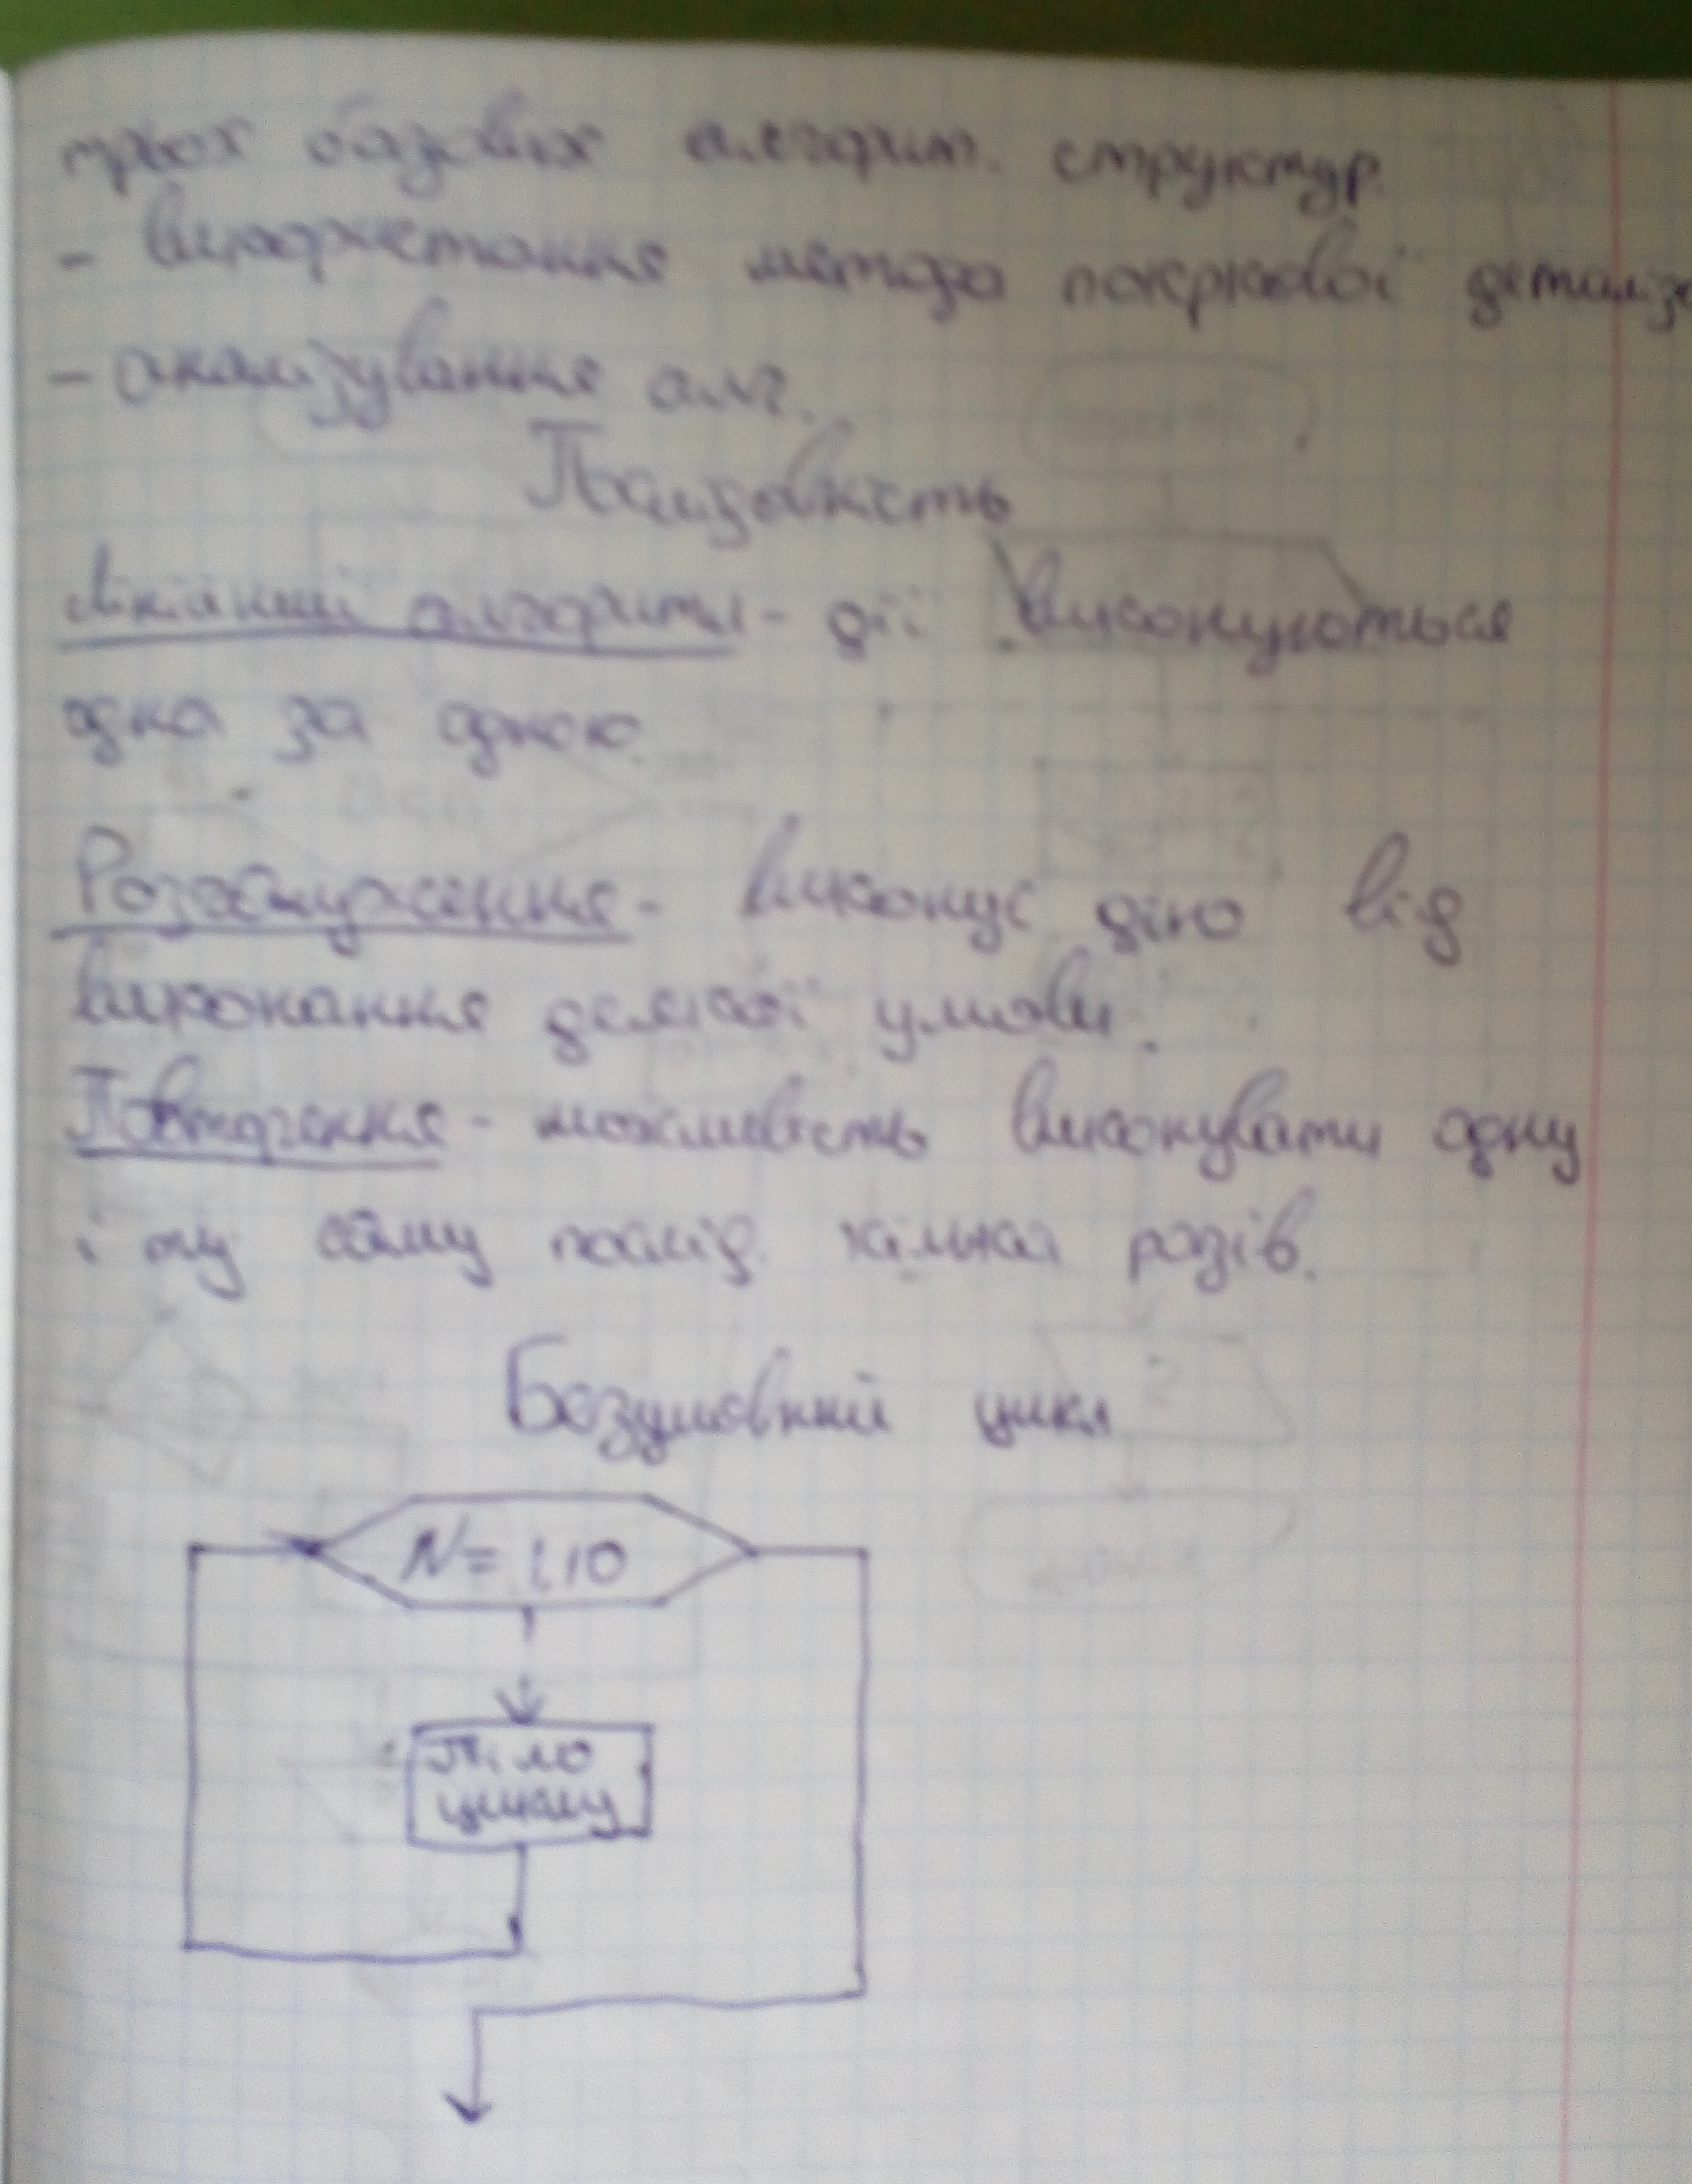 трьох базових алгорит. структур.
- використання метода покрокової деталіза
- аналізування алг.
Послідовність
Лінійний алгоритм - дії виконуються
одна за одною.
Розгалуження - виконує дію від
виконання деякої умови.
Повторення - можливість виконувати одну
і ту саму послід. кілька разів.
Безумовний цикл
N = 1,10
Тіло
циклу